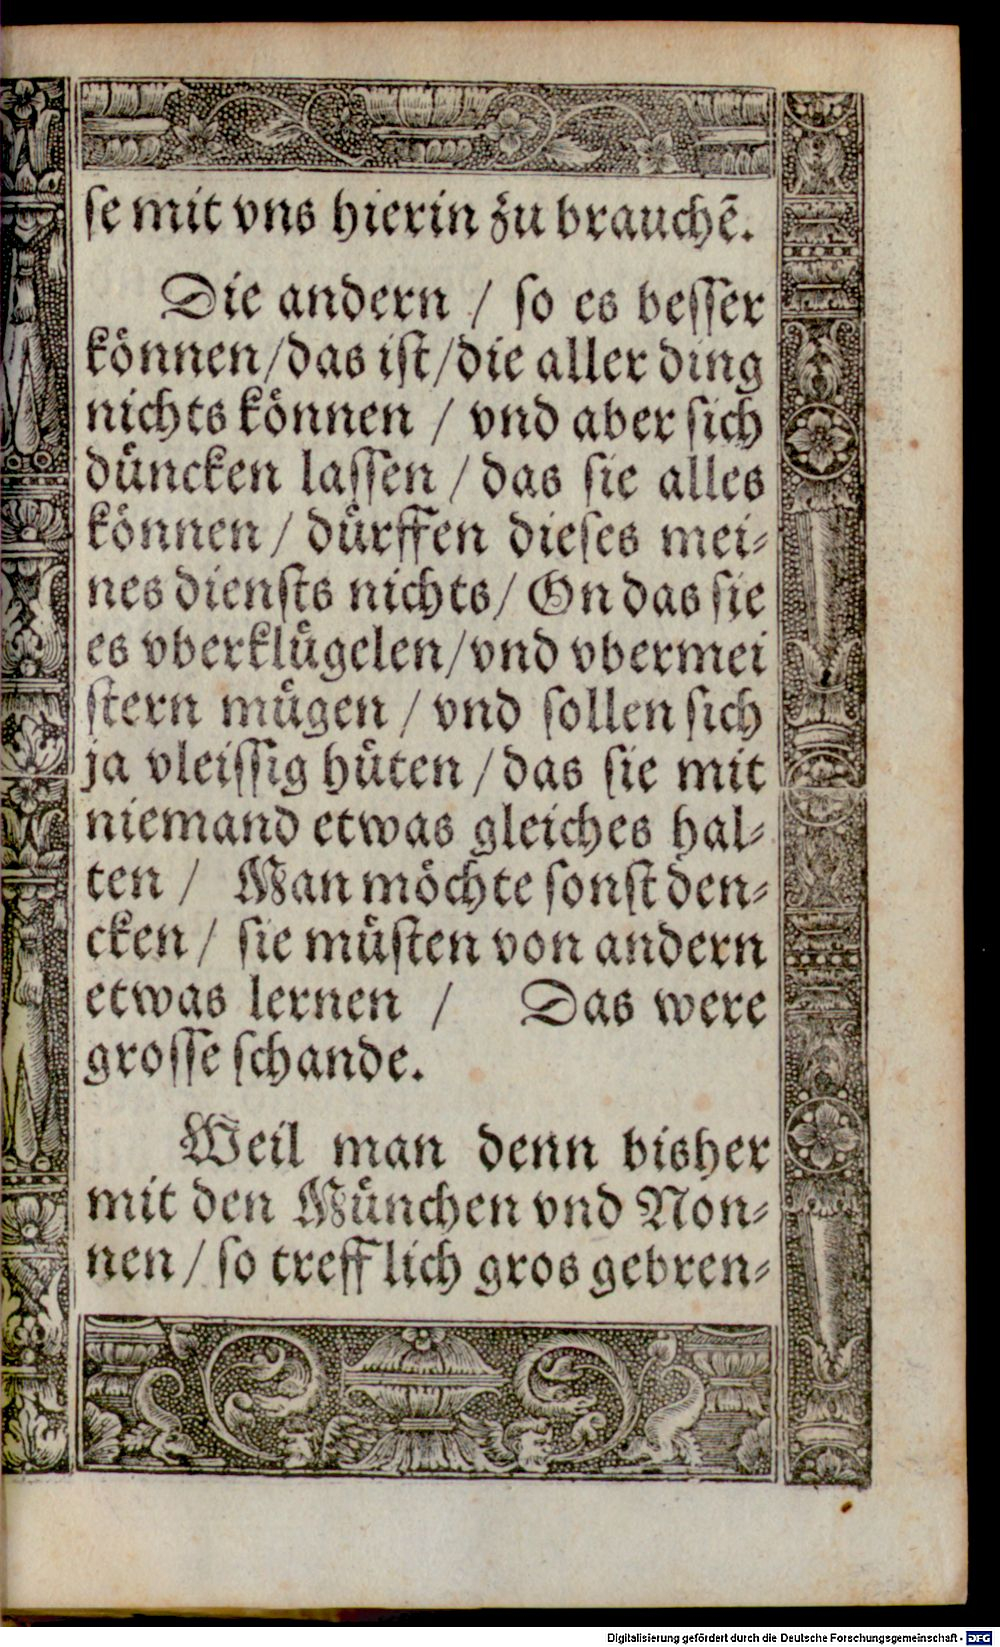 se mit vns hierin zu brauchẽ.
Die andern / so es besser
können/das ist/die aller ding
nichts können / vnd aber sich
düncken lassen / das sie alles
können / dürffen dieses mei⸗
nes diensts nichts/ On das sie
es vberklügelen/vnd vbermei
stern mügen / vnd sollen sich
ja vleissig hüten / das sie mit
niemand etwas gleiches hal⸗
ten / Man möchte sonst den⸗
cken / sie müsten von andern
etwas lernen / Das were
grosse schande.
Weil man denn bisher
mit den München vnd Non⸗
nen / so trefflich gros gebren⸗
Digitalisierung gefördert durch die Deutsche Forschungsgemeinschaft - DFG